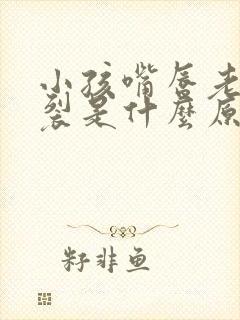 小孩嘴唇老
裂是什麼原
籽非鱼